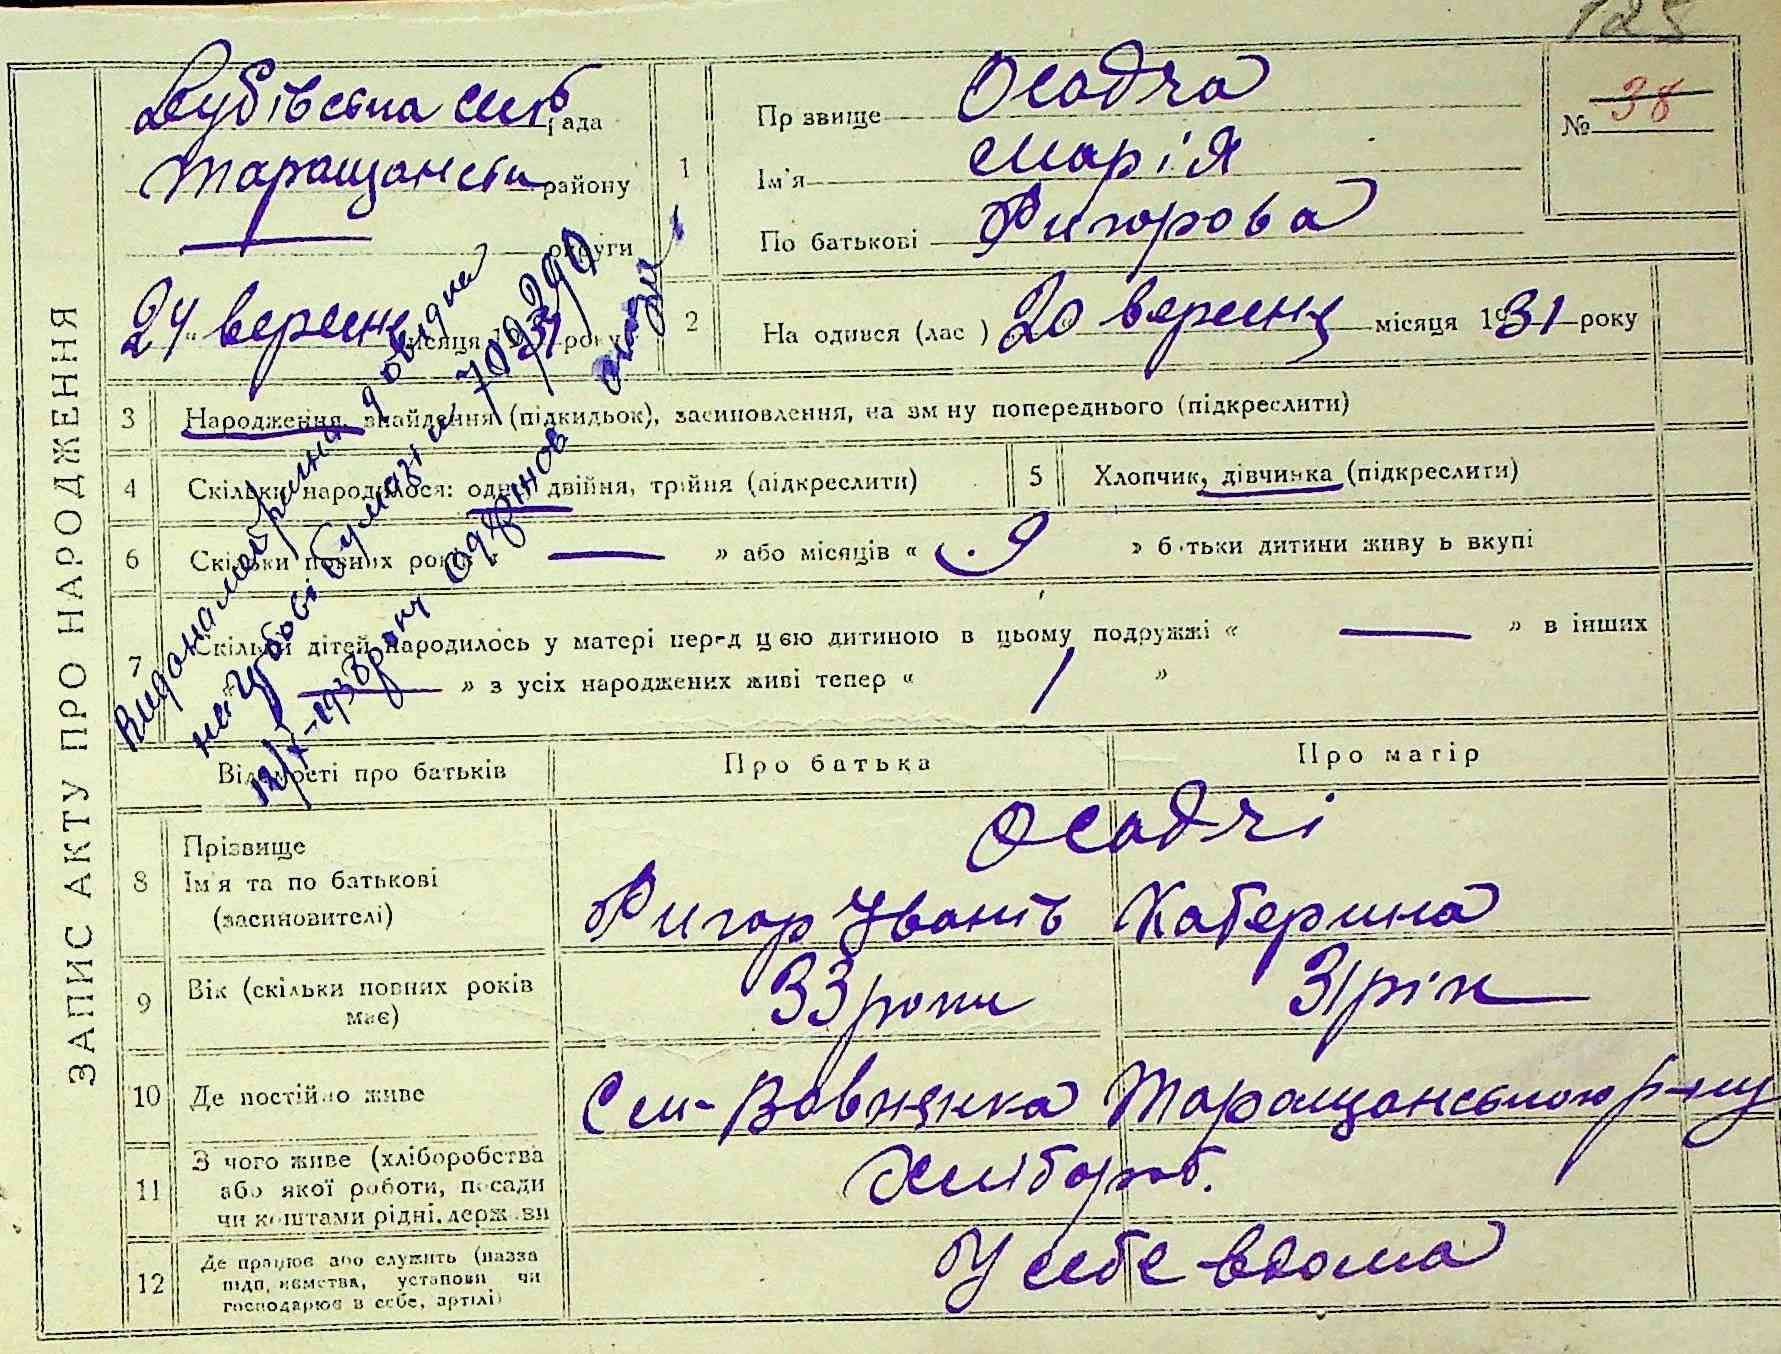 128
ЗАПИС АКТУ ПРО НАРОДЖЕННЯ
Лубівська сіль рада
Таращанськ району
— округи
24 вересня місяця 1931 року
1 Прізвище Осадча
Ім'я Марія
По батькові Ригорова
№ 38
2 На одився (лас ) 20 вересня місяця 1931 року
3 Народження, знайдення (підкидьок), засиновлення, на зм ну попереднього (підкреслити)
4 Скільки народилося: одне, двійня, трійня (підкреслити)
5 Хлопчик, дівчинка (підкреслити)
6 Скільки повних років « — » або місяців « 9 » б тьки дитини живу ь вкупі
7 Скільки дітей народилось у матері перед цією дитиною в цьому подружжі « — » в інших
« — » з усіх народжених живі тепер « 1 »
Видана метрична довідка
на бумазі 1931 390
12/X-1938 року
Відомості про батьків
Про батька
Про матір
8 Прізвище
Ім'я та по батькові
(засиновителі)
Осадчі
Ригор Іванів
Катерина
9 Вік (скільки повних років
має)
33 роки
31 рік
10 Де постійно живе
Сил- Вовнянка Таращанського р-ну
11 З чого живе (хліборобства
або якої роботи, посади
чи коштами рідні, держави
Хлібороб.
12 Де працює або служить (назва
підп, иємства, установи чи
господарює в себе, артілі)
У себе вдома